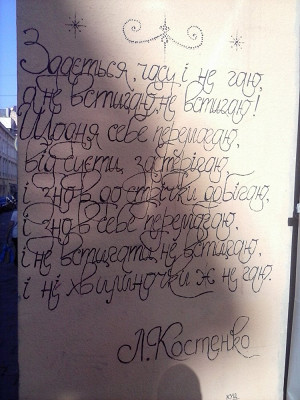 Здається, часу і не гаю,
а не встигаю, не встигаю!
Щодня себе перемагаю,
від суєти застерігаю,
і знов до стрічки добігаю,
і знов себе перемагаю,
і не встигати, не встигаю,
і ні хвилиночки ж не гаю.
Л. Костенко